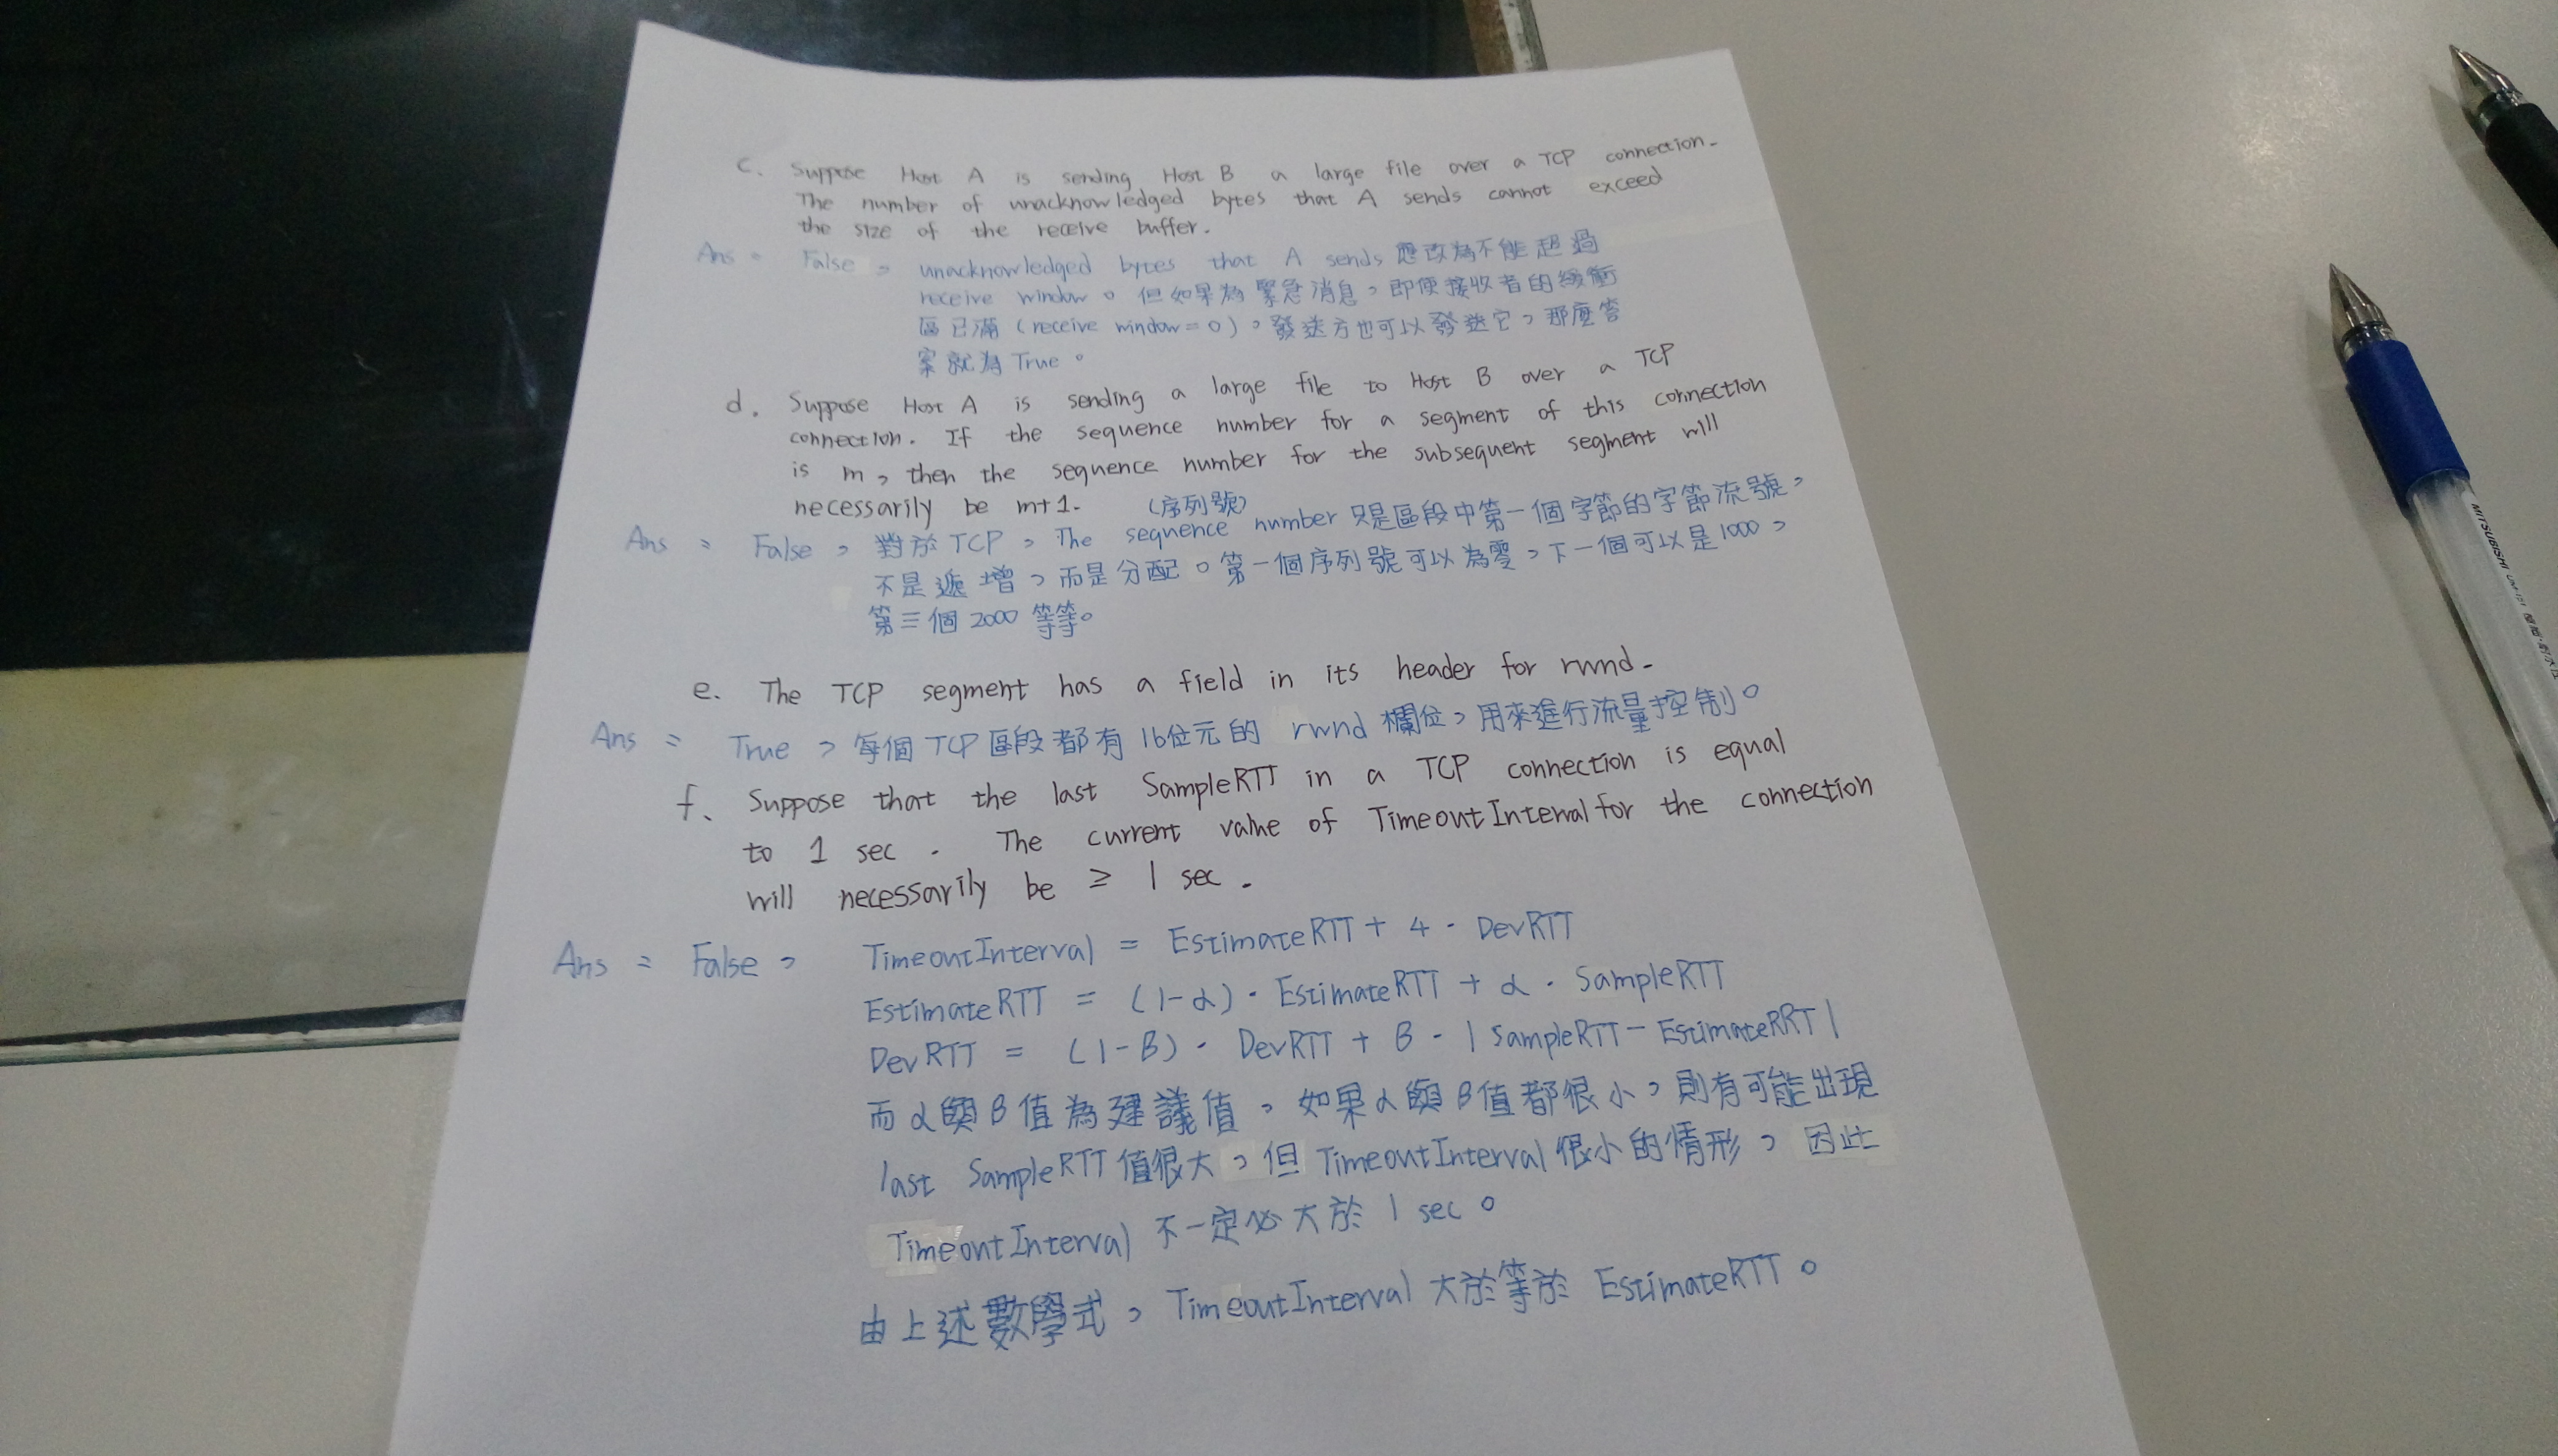 c. Suppose Host A is sending Host B a large file over a TCP connection.
The number of unacknowledged bytes that A sends cannot exceed
the size of the receive buffer.
Ans: False, unacknowledged bytes that A sends 應改為不能超過
receive window。但如果為緊急消息,即便接收者的緩衝
區已滿(receive window=0),發送方也可以發送它,那麼答
案就為True。
d. Suppose Host A is sending a large file to Host B over a TCP
connection. If the sequence number for a segment of this connection
is m, then the sequence number for the subsequent segment will
necessarily be m+1.
(序列號)
Ans: False,對於TCP,The sequence number 只是區段中第一個字節的字節流號,
不是遞增,而是分配。第一個序列號可以為零,下一個可以是1000,
第三個2000等等。
e. The TCP segment has a field in its header for rwnd.
Ans: True,每個TCP區段都有16位元的 rwnd 欄位,用來進行流量控制。
f. Suppose that the last SampleRTT in a TCP connection is equal
to 1 sec. The current value of TimeoutInterval for the connection
will necessarily be ≥ 1 sec.
Ans: False, TimeoutInterval = EstimateRTT + 4 · DevRTT
EstimateRTT = (1-α) · EstimateRTT + α · SampleRTT
DevRTT = (1-β) · DevRTT + β · | SampleRTT - EstimateRRT |
而α與β值為建議值,如果α與β值都很小,則有可能出現
last SampleRTT值很大,但TimeoutInterval很小的情形,因此
TimeoutInterval 不一定必大於 1 sec。
由上述數學式,TimeoutInterval大於等於 EstimateRTT。
MITSUBISHI